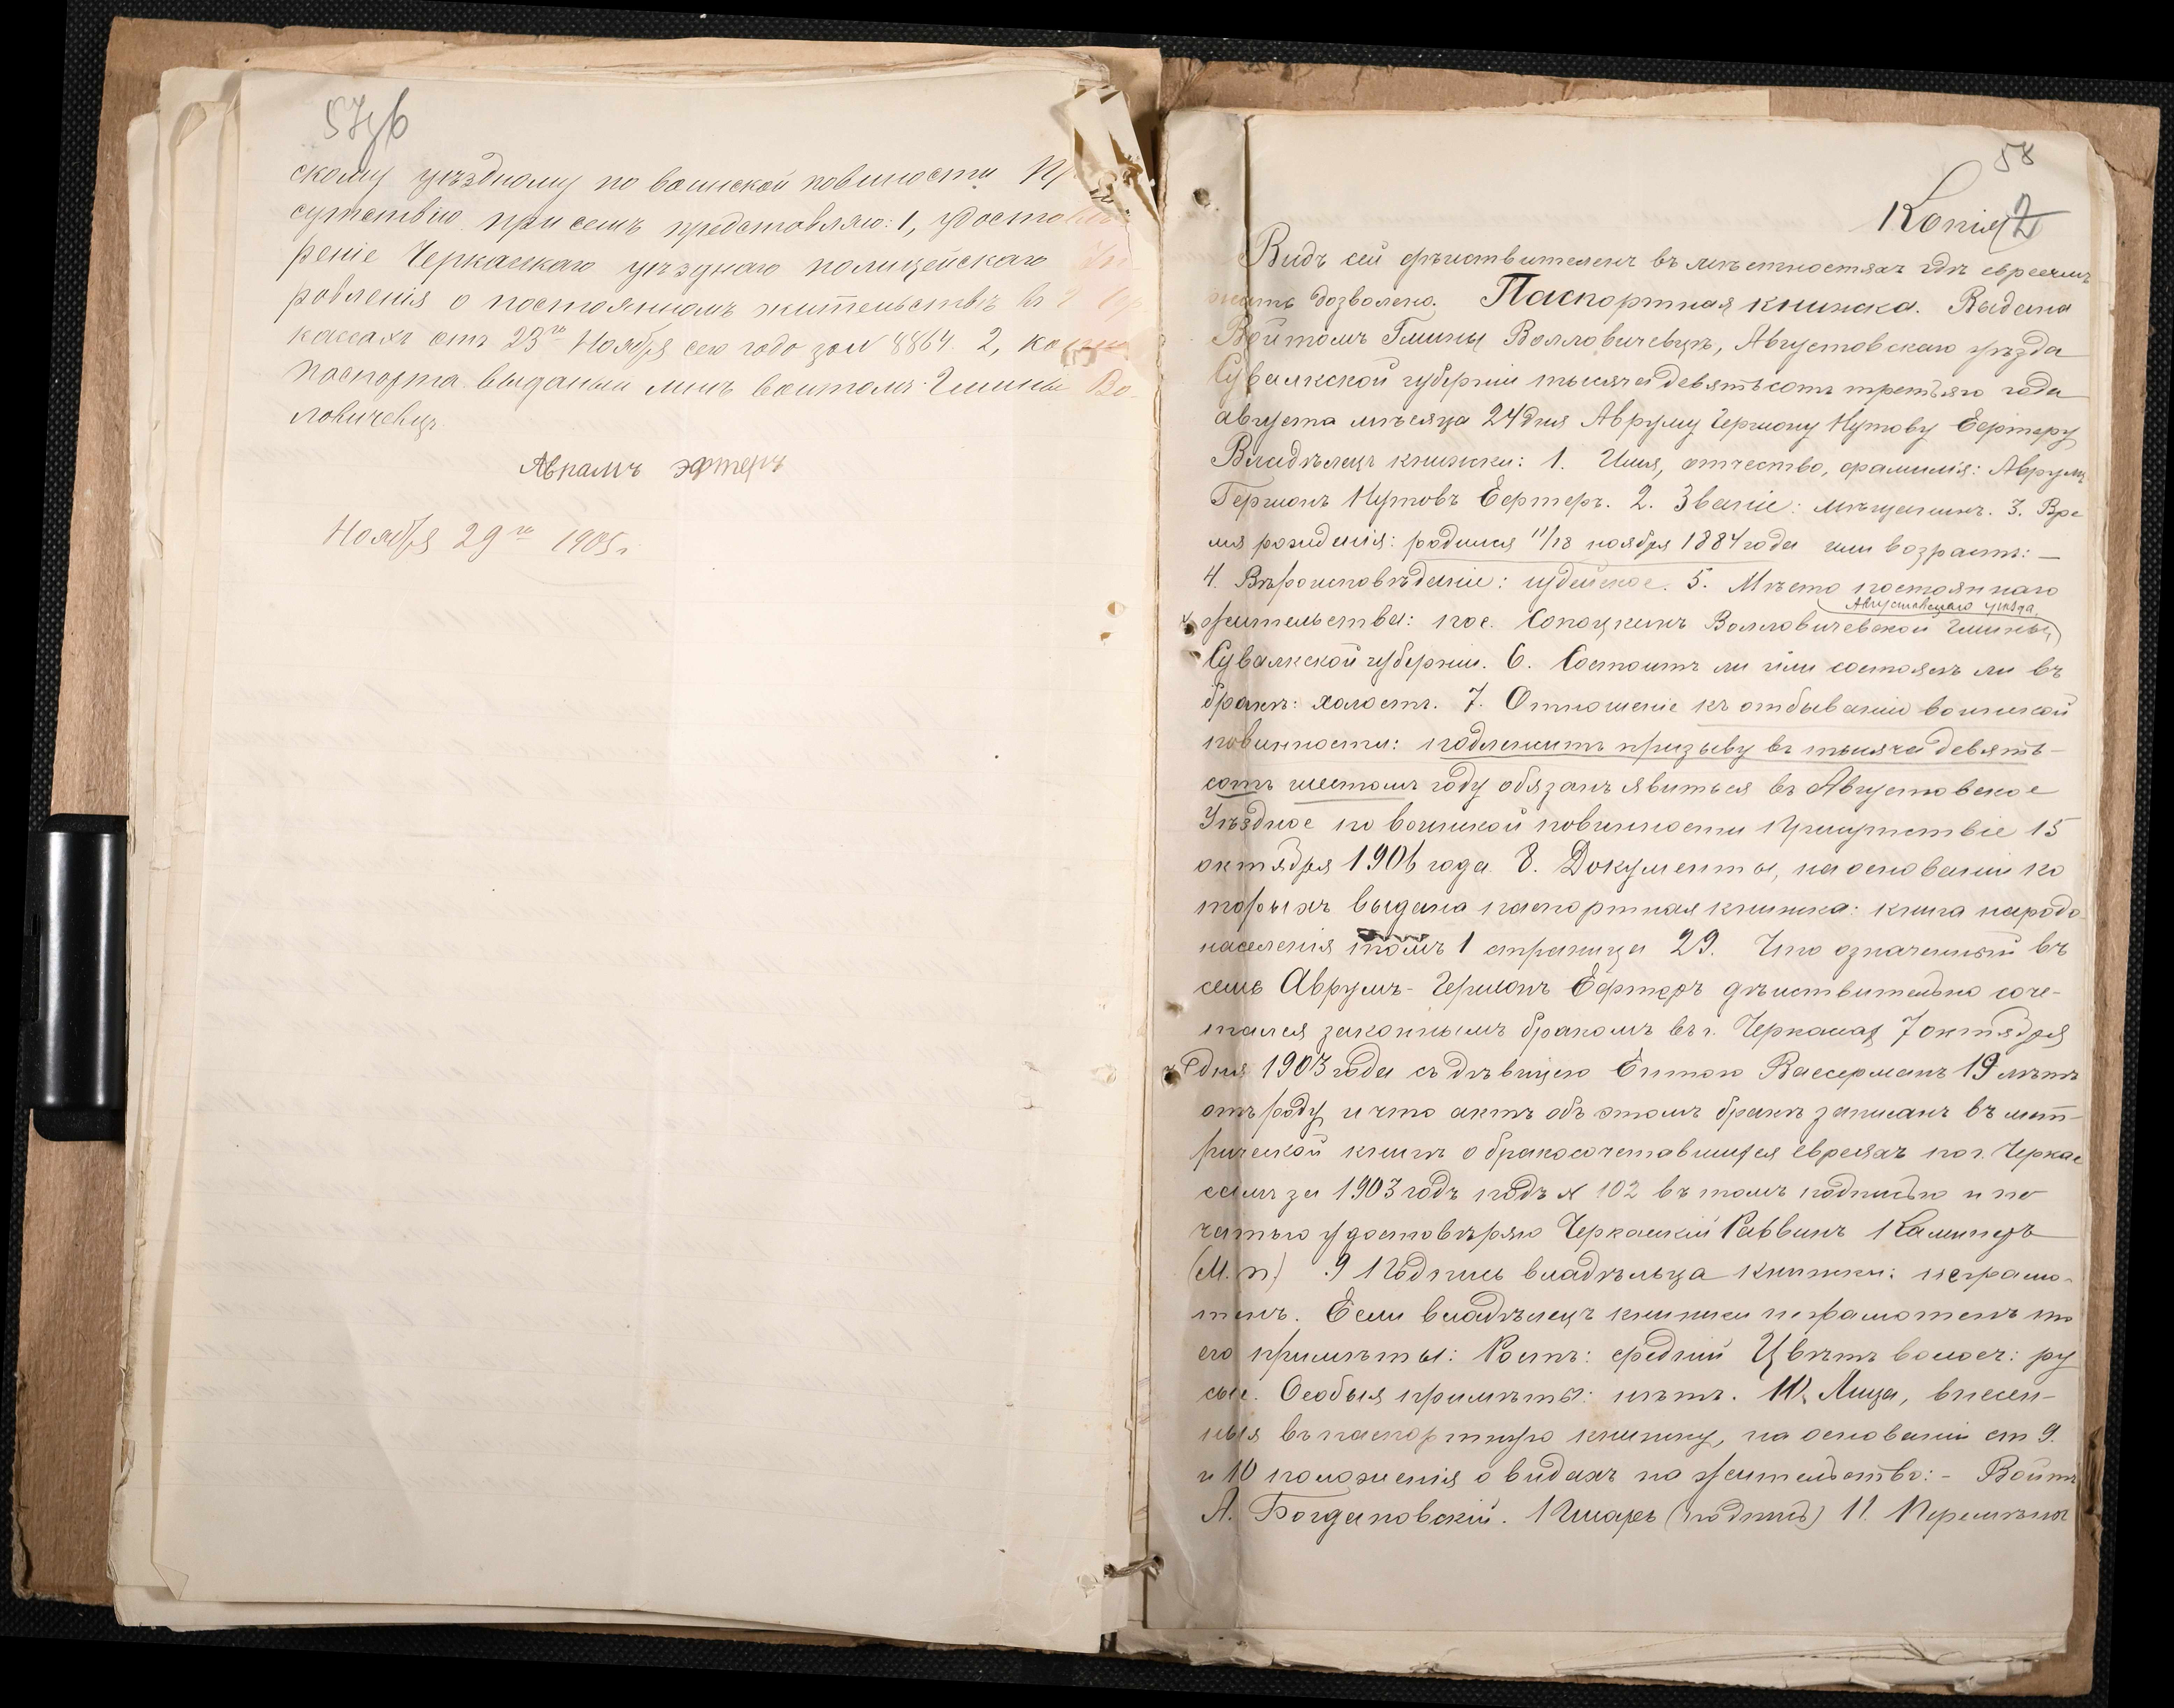 57об
скому уѣздному по воинской повиности Пр
сутствію при семъ представляю: 1, удосто
реніе Черкаскаго уѣзднаго полицейскаго
ровленія о постоянномъ жительствѣ въ
кассахъ отъ 23го Ноября сего года за № 8864. 2, копію
паспорта выданый мнѣ воитомъ Гмины Во-
ловичевцъ.
Авнамъ эфтеръ
Ноября 29го 1905 г.
58
Копія 2
Видъ сей дѣиствителенъ въ мѣстностяхъ гдѣ евреямъ
жить дозволено. Паспортная книжка. Выдана
Войтомъ Гмины Волловичевцъ, Августовскаго уѣзда
Сувалкской губерніи тысяча девятьсотъ третьяго года
августа мѣсяца 24 дня Авруму Гермону Нутову Ефтеру
Владѣлецъ книжки: 1. Имя, отчество, фамилія: Аврумъ
Гермонъ Нутовъ Ефтеръ. 2. Званіе: мѣщанинъ. 3. Вре
мя рожденія: родился 11/18 ноября 1884 года или возрастъ: —
4. Вѣроисповѣданіе: іудейское. 5. Мѣсто постояннаго
Августовскаго уѣзда
жительства: пос. Сопоцкинъ Волловичевской Гмины,
Сувалкской губерніи. 6. Состоитъ ли или состоялъ ли въ
бракѣ: холостъ. 7. Отношеніе къ отбыванію воинской
повинности: подлежитъ призыву въ тысяча девять-
сотъ шестомъ году обязанъ явиться въ Августовское
Уѣздное по воинской повинности Присутствіе 15
октября 1906 года. 8. Документы, на основаніи ко
торыхъ выдана паспортная книжка: книга народо-
населенія томъ 1 страница 29. Что означенный въ
семъ Аврумъ-Гермонъ Ефтеръ дѣиствительно соче-
тался законнымъ бракомъ въ г. Черкасах 7 октября
дня 1903 года съ дѣвицею Ентою Вассерманъ 19 лѣтъ
отъ роду и что актъ объ этомъ бракѣ записанъ въ мет-
рической книгѣ о бракосочетавшихся евреяхъ по г. Черкас
самъ за 1903 годъ подъ № 102 въ томъ подписью и пе
чатью удостовѣряю Черкаскій Раввинъ Каминеръ
(М. п.) .9 Подпись владѣльца книжки: неграмо-
тенъ. Если владѣлецъ книжки неграмотенъ то
его примѣты: Ростъ: средній Цвѣтъ волосъ: ру
сые. Особыя примѣты: нѣтъ. 10. Лица, внесен-
ныя въ паспортную книжку, на основаніи ст 9.
и 10 положенія о видахъ на жительство: - Войтъ
А. Богдановскій. Писарь (подпись) 11. Перемѣны